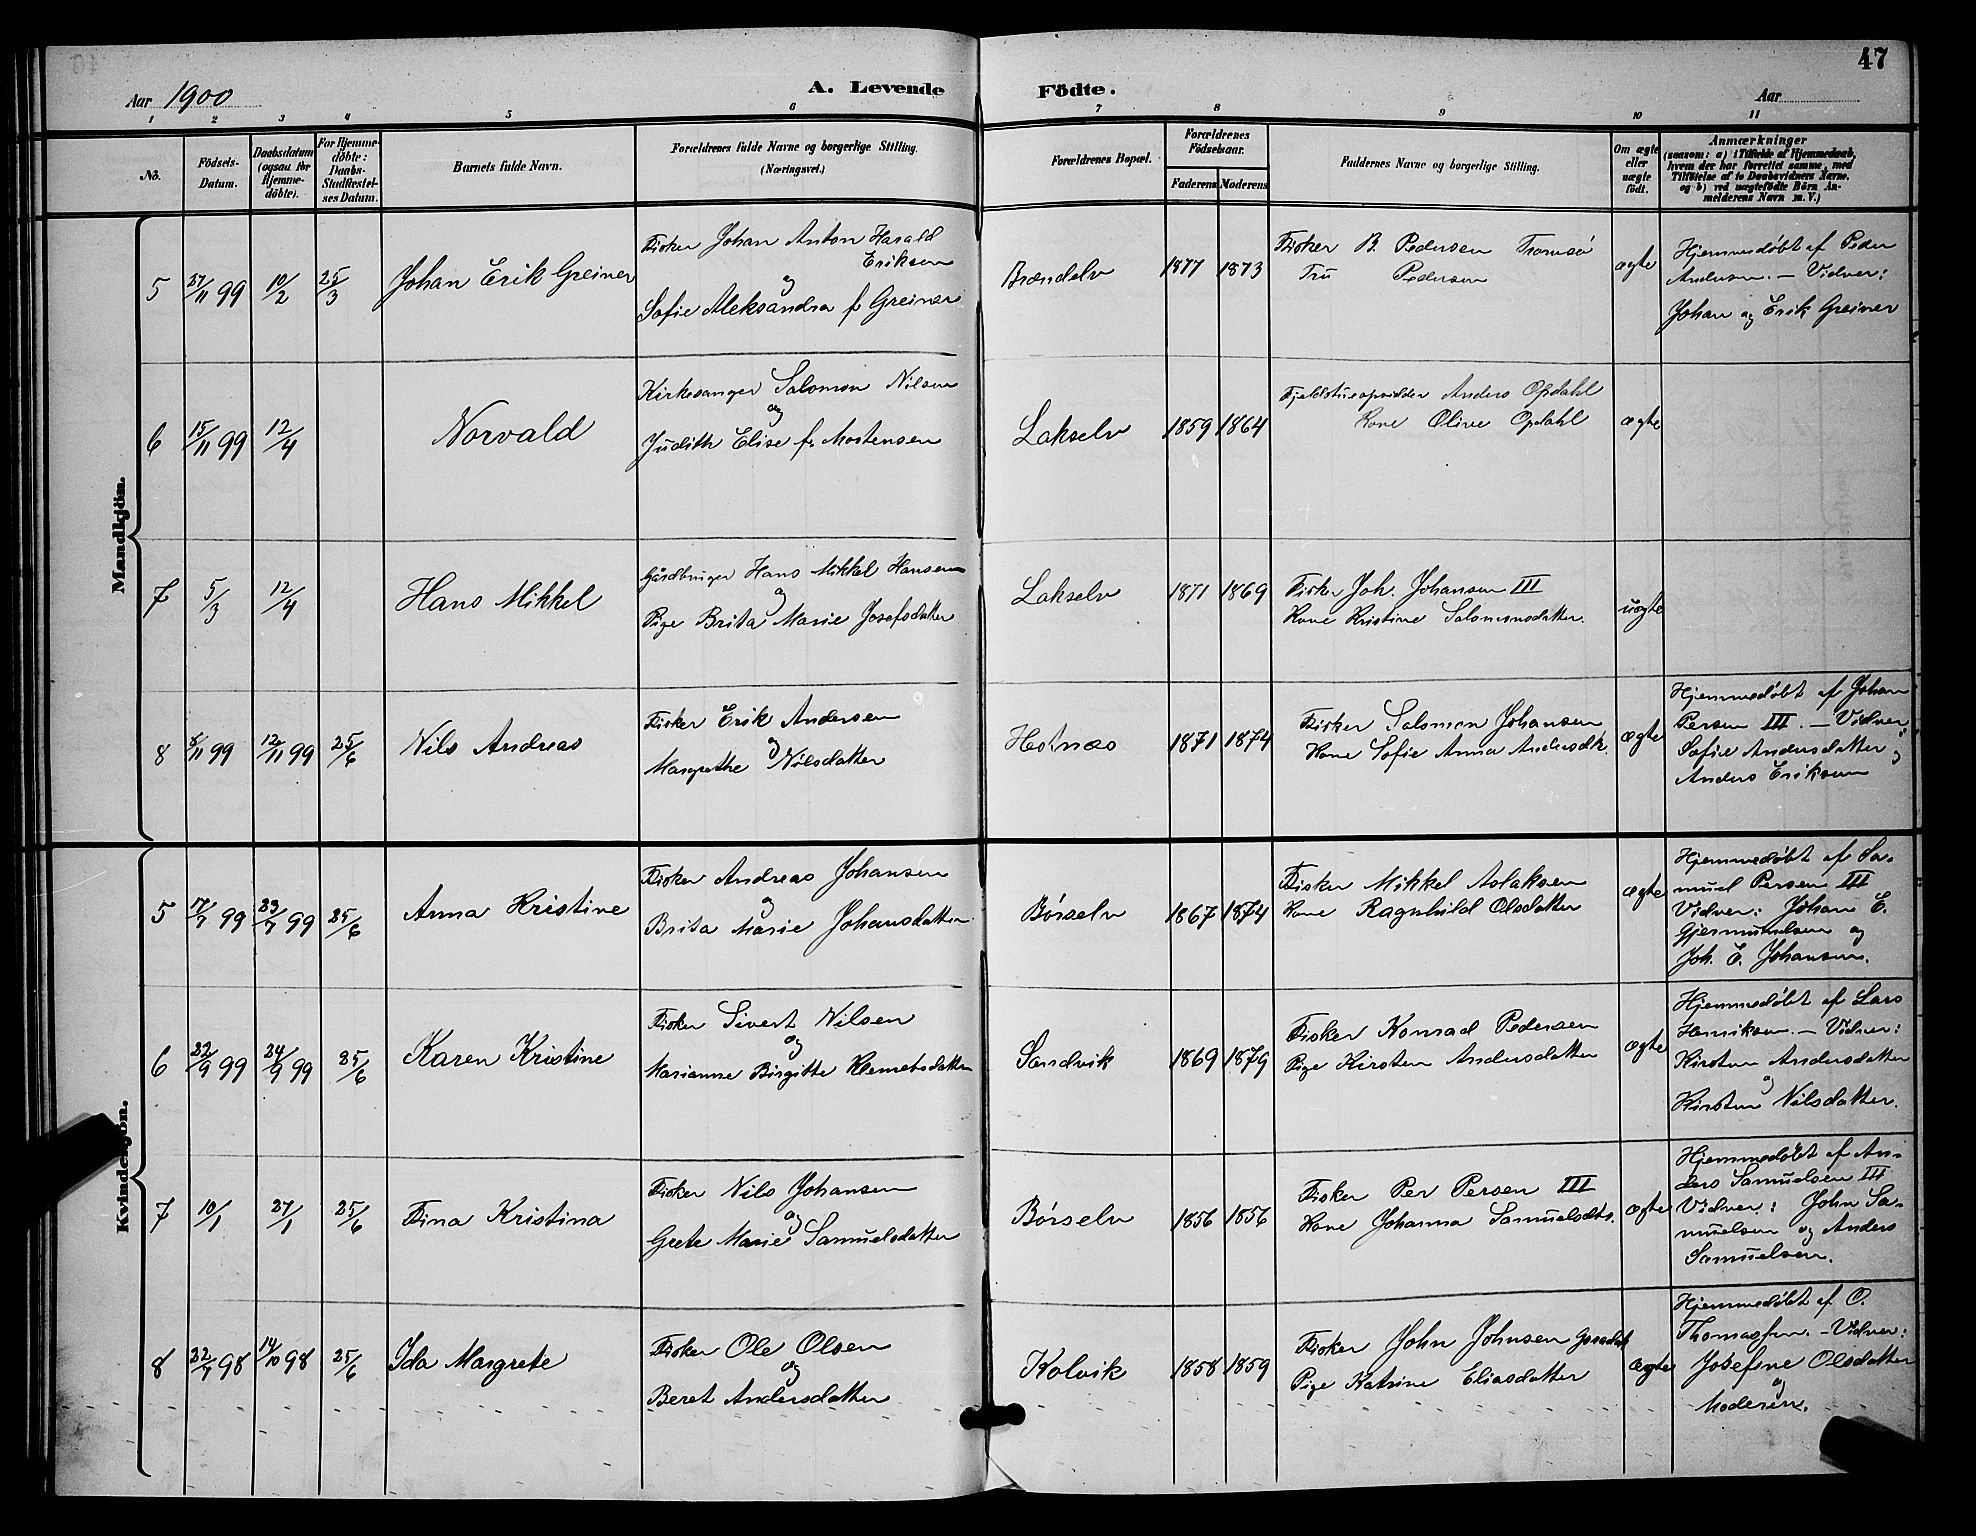 47
Aar 1900
A. Levende Födte.
Aar
1 2 3 4 5 6 7 8 9 10 11
No.
Födsels-Datum.
Daabsdatum (ogsaa for Hjemmedöbte).
For Hjemmedöbte: Daabs-Stadfestelses Datum.
Barnets fulde Navn.
Forældrenes fulde Navne og borgerlige Stilling. (Næringsvei.)
Forældrenes Bopæl.
Forældrenes Födselsaar.
Faderens Moderens
Faddernes Navne og borgerlige Stilling.
Om ægte eller uægte födt.
Anmærkninger
(saasom: a) i Tilfælde af Hjemmedaab, hvem der har forrettet samme, med Tilföielse af to Daabsvidners Navne, og b) ved uægtefödte Börn Anmelderens Navn m. V.)
Mandkjön.
5 27/11 99 10/2 25/3 Johan Erik Greiner
Fisker Johan Anton Harald
Eriksen
og
Sofie Aleksandra f. Greiner
Brændelv 1877 1873
Fisker B. Pedersen Tromsö
Fru Pedersen
ægte
Hjemmedøbt af Peder
Andersen. – Vidner:
Johan og Erik Greiner
6 15/11 99 12/4 Norvald
Kirkesanger Salomon Nilsen
og
Judith Elise f. Mortensen
Lakselv 1859 1864
Fjeldstueopsidder Anders Opdahl
Kone Olive Opdahl
ægte
7 5/3 12/4 Hans Mikkel
Gårdbruger Hans Mikkel Hansen
og
Pige Brita Marie Josefsdatter
Lakselv 1871 1869
Fisker Joh. Johansen III
Kone Kristine Salomonsdatter.
uægte
8 8/11 99 12/11 99 25/6 Nils Andreas
Fisker Erik Andersen
og
Margrethe Nilsdatter
Hotnæs 1871 1874
Fisker Salomon Johansen
Kone Sofie Anna Andersdtr.
ægte
Hjemmedøbt af Johan
Persen III. – Vidner:
Sofie Andersdatter og
Anders Eriksen
Kvindesjön.
5 17/7 99 23/7 99 25/6 Anna Kristine
Fisker Andreas Johansen
og
Brita Marie Johansdatter
Børselv 1867 1874
Fisker Mikkel Aslaksen
Kone Ragnhild Olsdatter
ægte
Hjemmedøbt af Sa-
muel Persen III
Vidner: Johan E.
Gjermundsen og
Joh. E. Johansen.
6 22/9 99 24/9 99 25/6 Karen Kristine
Fisker Sivert Nilsen
og
Marianne Birgitte Klemetsdatter
Sandvik 1869 1879
Fisker Konrad Pedersen
Pige Kirsten Andersdatter
ægte
Hjemmedøbt af Lars
Henriksen. – Vidner:
Kirsten Andersdatter
og
Kirsten Nilsdatter.
7 10/1 27/1 25/6 Fina Kristina
Fisker Nils Johansen
og
Grete Marie Samuelsdatter
Børselv 1856 1856
Fisker Per Persen III
Kone Johanna Samuelsdtr.
ægte
Hjemmedøbt af An-
ders Samuelsen III
Vidner: John Sa-
muelsen og Anders
Samuelsen.
8 22/7 98 14/10 98 25/6 Ida Margrete
Fisker Ole Olsen
og
Beret Andersdatter
Kolvik 1858 1859
Fisker John Johnsen
Pige Katrine Eliasdatter
ægte
Hjemmedøbt af O.
Thomassen. – Vidner:
Josefine Olsdatter
og
Moderen.